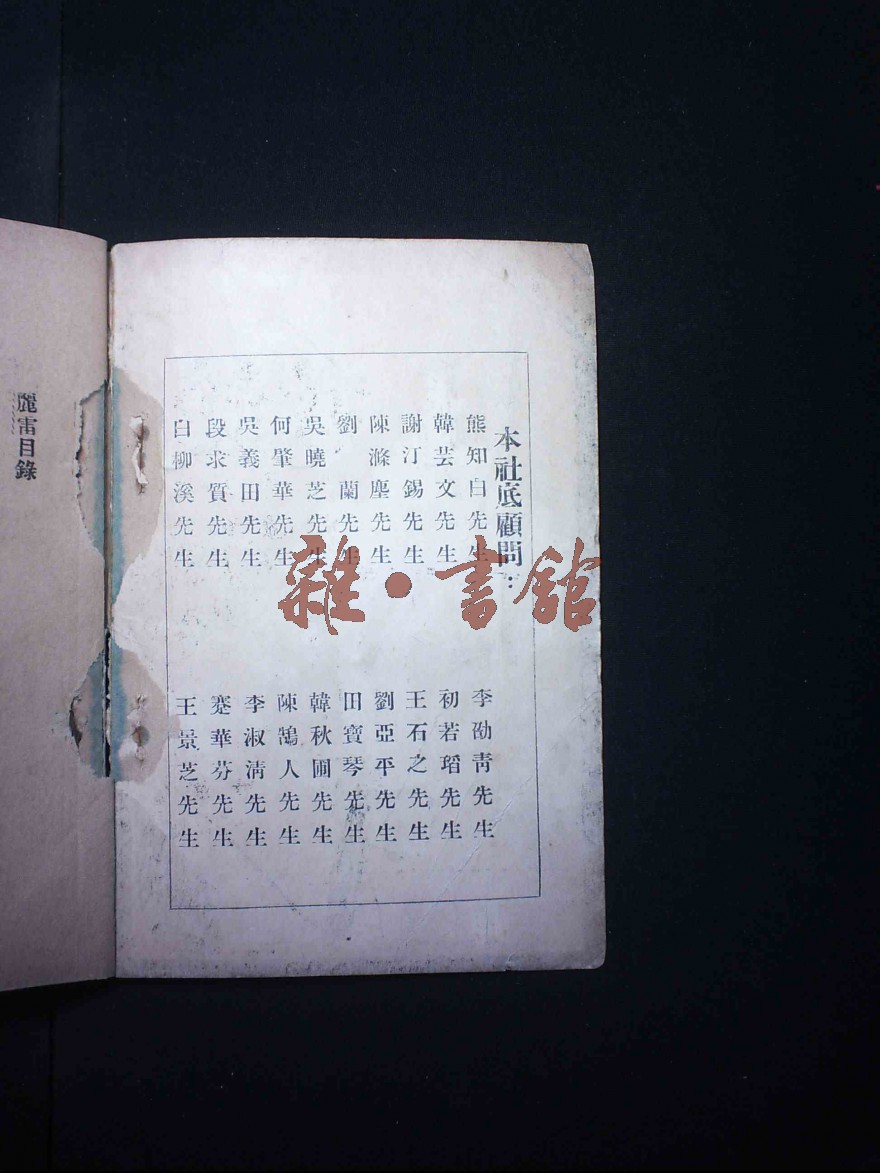 本社底顧問：
熊知白先生
韓芸文先生
謝汀錫先生
陳滌塵先生
劉蘭先生
吳曉芝先生
何肇華先生
吳義田先生
段求質先生
白柳溪先生
李劭青先生
初若瑫先生
王石之先生
劉亞平先生
田寶琴先生
韓秋圃先生
陳鵠人先生
李淑清先生
蹇華芬先生
王景芝先生
麗雷目錄
雜·書館